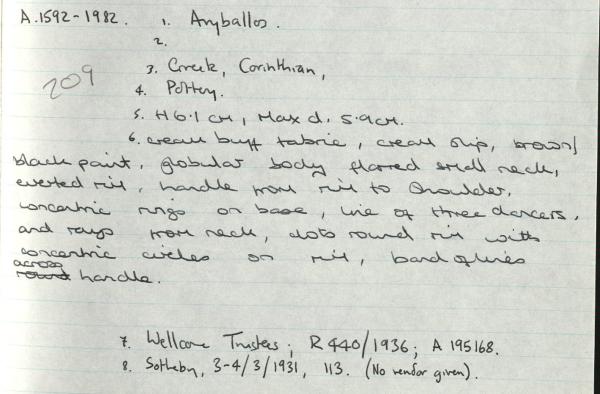 A.1592-1982. 1. Aryballos.
2.
209
3. Greek, Corinthian,
4. Pottery.
5. H 6.1 cm, Max d. 5.9cm.
6. cream buff fabric, cream slip, brown/
black paint, globular body flared small neck,
everted rim, handle from rim to shoulder,
concentric rings on base, line of three dancers,
and rays from neck, dots round rim with
concentric circles on rim, band of lines
across
round handle.
7. Wellcome Trustees; R 440/1936; A 195168.
8. Sotheby, 3-4/3/1931, 113. (No vendor given).